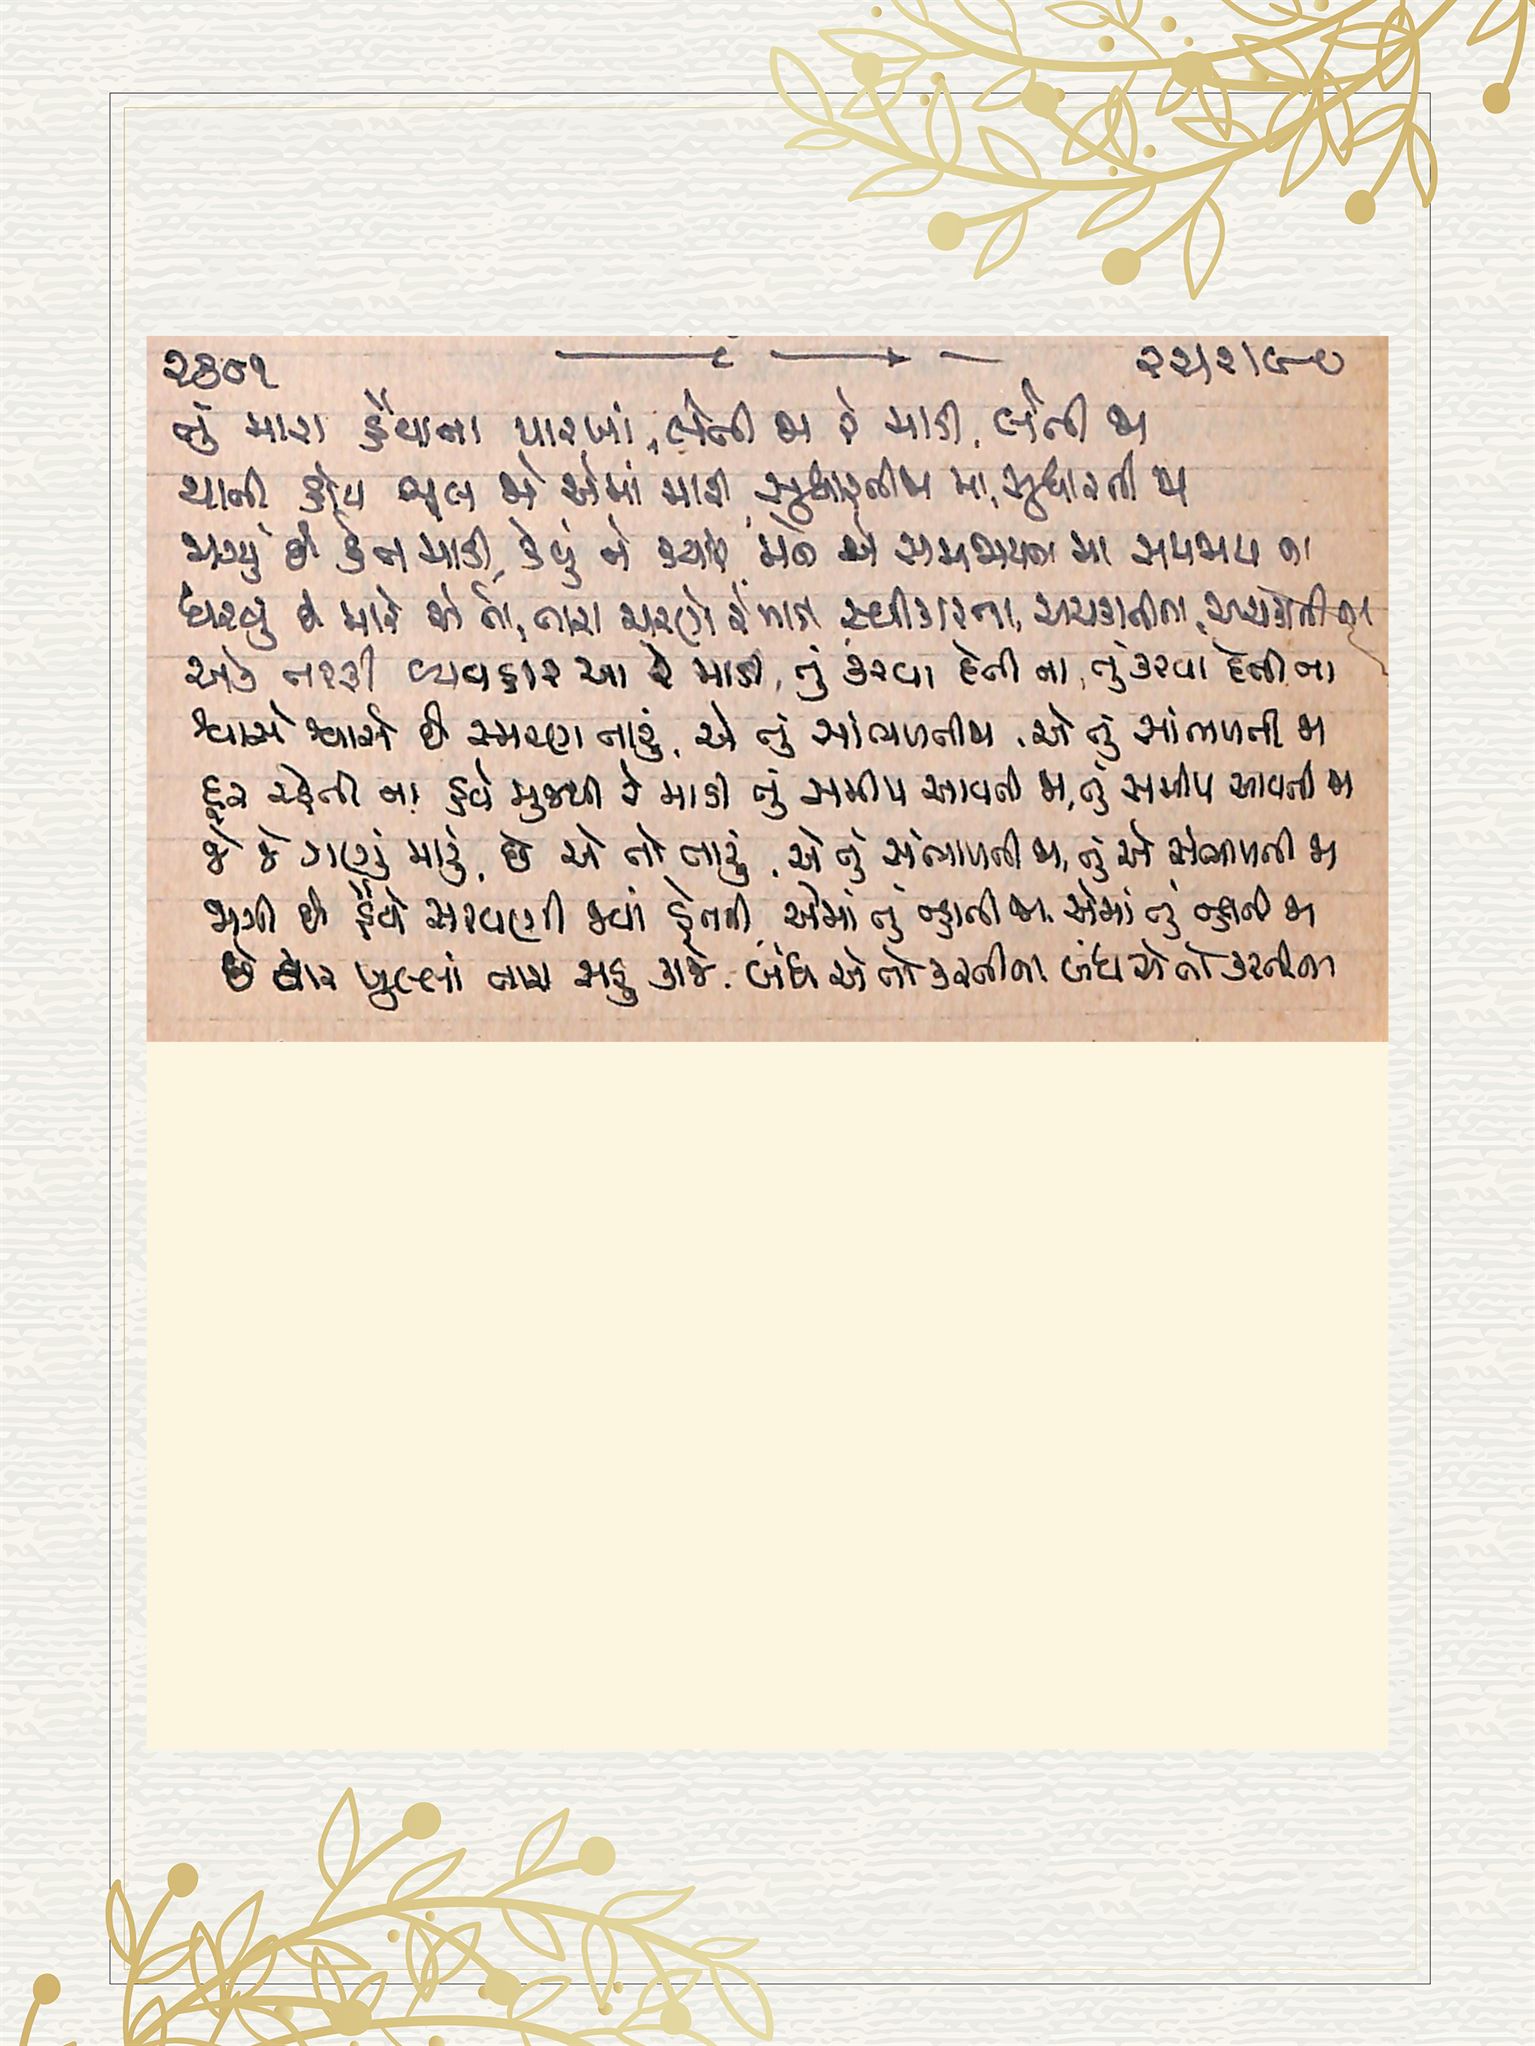 ૨૩૦૧ ૨૨/૨/૯૦
તું મારા હૈયાના પારખાં, લેતી જા રે માડી, લેતી જા
થાતી હોય ભૂલ જો એમાં મારી, સુધારતી જા મા, સુધારતી જા
મળ્યું છે કેમ માડી, કેવું ને ક્યારે, મને એ સમજાય ના મા સમજાય ના
ધરવું છે મારે જે તો, તારા ચરણે રે માડી સ્વીકારતા, અચકાતી ના, અચકાતી ના
એક તરફી વ્યવહાર આ રે માડી, તું કરવા દેતી ના, તું કરવા દેતી ના
શ્વાસે શ્વાસે છે સ્મરણ તારું, એ તું સાંભળતી જા, એ તું સાંભળતી જા
દૂર રહેતી ના હવે મુજથી રે માડી તું સમીપ આવતી જા, તું સમીપ આવતી જા
જે જે ગણું મારું, છે એ તો તારું, એ તું સંભાળતી જા, તું એ સંભાળતી જા
જાગી છે હૈયે સરવાણી જ્યાં હેતની, એમાં તું ન્હાતી જા, એમાં તું ન્હાતી જા
છે દ્વાર ખુલ્લાં તારા સહુ કાજે, બંધ એ તો કરતી ના બંધ એ તો કરતી ના